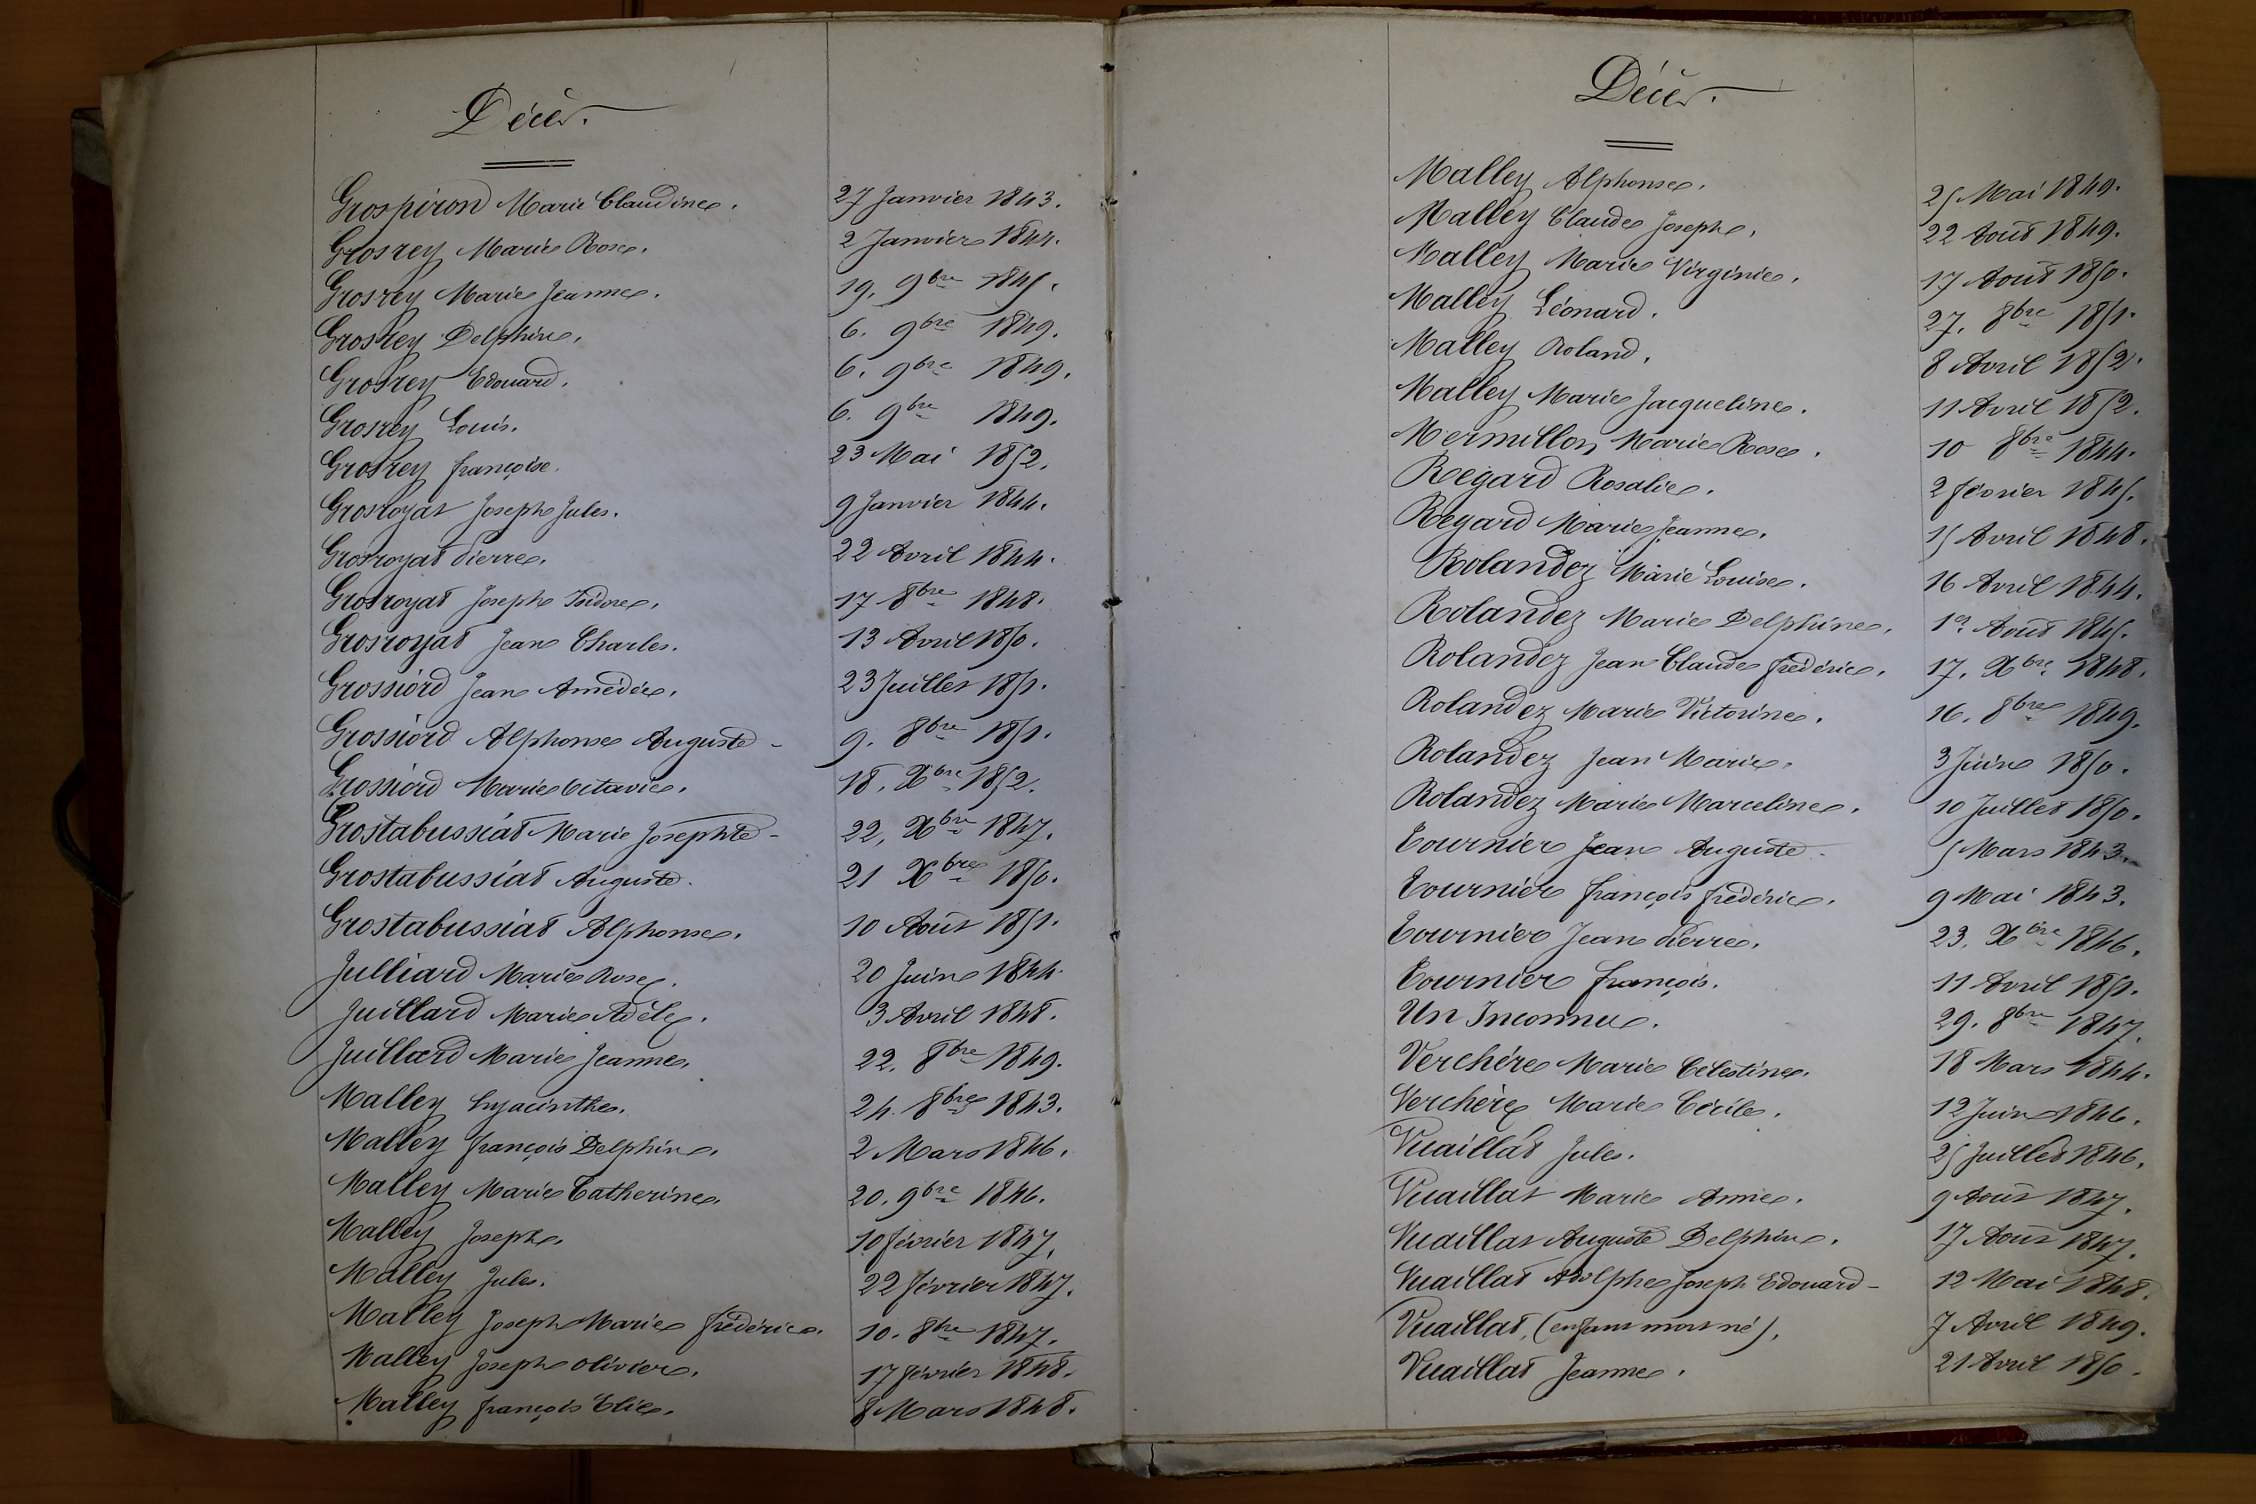 Décès.
Grospiron Marie Claudine. 27 Janvier 1843.
Grosrey Marie Rose. 2 Janvier 1844.
Grosrey Marie Jeanne. 19. 9bre 1845.
Grosrey Delphine. 6. 9bre 1849.
Grosrey Edouard. 6. 9bre 1849.
Grosrey Louis. 6. 9bre 1849.
Grosrey françoise. 23 Mai 1852.
Grosroyat Joseph Jules. 9 Janvier 1844.
Grosroyat Pierre. 22 Avril 1844.
Grosroyat Joseph Isidore. 17 8bre 1848.
Grosroyat Jean Charles. 13 Avril 1850.
Grossiord Jean Amédée. 23 Juillet 1851.
Grossiord Alphonse Auguste - 9. 8bre 1851.
Grossiord Marie Octavie. 18. Xbre 1852.
Grostabussiat Marie Josephte - 22. Xbre 1847.
Grostabussiat Auguste. 21 Xbre 1850.
Grostabussiat Alphonse. 10 Août 1851.
Julliard Marie Rose. 20 Juin 1844.
Juillard Marie Adèle. 3 Avril 1848.
Juillard Marie Jeanne. 22. 8bre 1849.
Malley hyacinthe. 24. 8bre 1843.
Malley françois Delphin. 2 Mars 1846.
Malley Marie Catherine. 20. 9bre 1846.
Malley Joseph. 10 février 1847.
Malley Jules. 22 février 1847.
Malley Joseph Marie frédéric. 10. 8bre 1847.
Malley Joseph Olivier. 17 février 1848.
Malley françois Elie. 8 Mars 1848.
Décès.
Malley Alphonse. 25 Mai 1849.
Malley Claude Joseph. 22 Août 1849.
Malley Marie Virginie. 17 Août 1850.
Malley Léonard. 27. 8bre 1851.
Malley Roland. 8 Avril 1852.
Malley Marie Jacqueline. 11 Avril 1852.
Mermillon Marie Rose. 10 8bre 1844.
Regard Rosalie. 2 février 1845.
Regard Marie Jeanne. 15 Avril 1848.
Rolandez Marie Louise. 16 Avril 1844.
Rolandez Marie Delphine. 1er Août 1845.
Rolandez Jean Claude frédéric. 17. Xbre 1848.
Rolandez Marie Victorine. 16. 8bre 1849.
Rolandez Jean Marie. 3 Juin 1850.
Rolandez Marie Marceline. 10 Juillet 1850.
Tournier Jean Auguste. 5 Mars 1843.
Tournier françois frédéric. 9 Mai 1843.
Tournier Jean Pierre. 23. Xbre 1846.
Tournier françois. 11 Avril 1851.
Un Inconnu. 29. 8bre 1847.
Verchère Marie Célestine. 18 Mars 1844.
Verchère Marie Cécile. 12 Juin 1846.
Vuaillat Jules. 25 Juillet 1846.
Vuaillat Marie Annie. 9 Août 1847.
Vuaillat Auguste Delphin. 17 Août 1847.
Vuaillat Adolphe Joseph Edouard - 12 Mai 1848.
Vuaillat, (enfant mort né). 7 Avril 1849.
Vuaillat Jeanne. 21 Avril 1850.